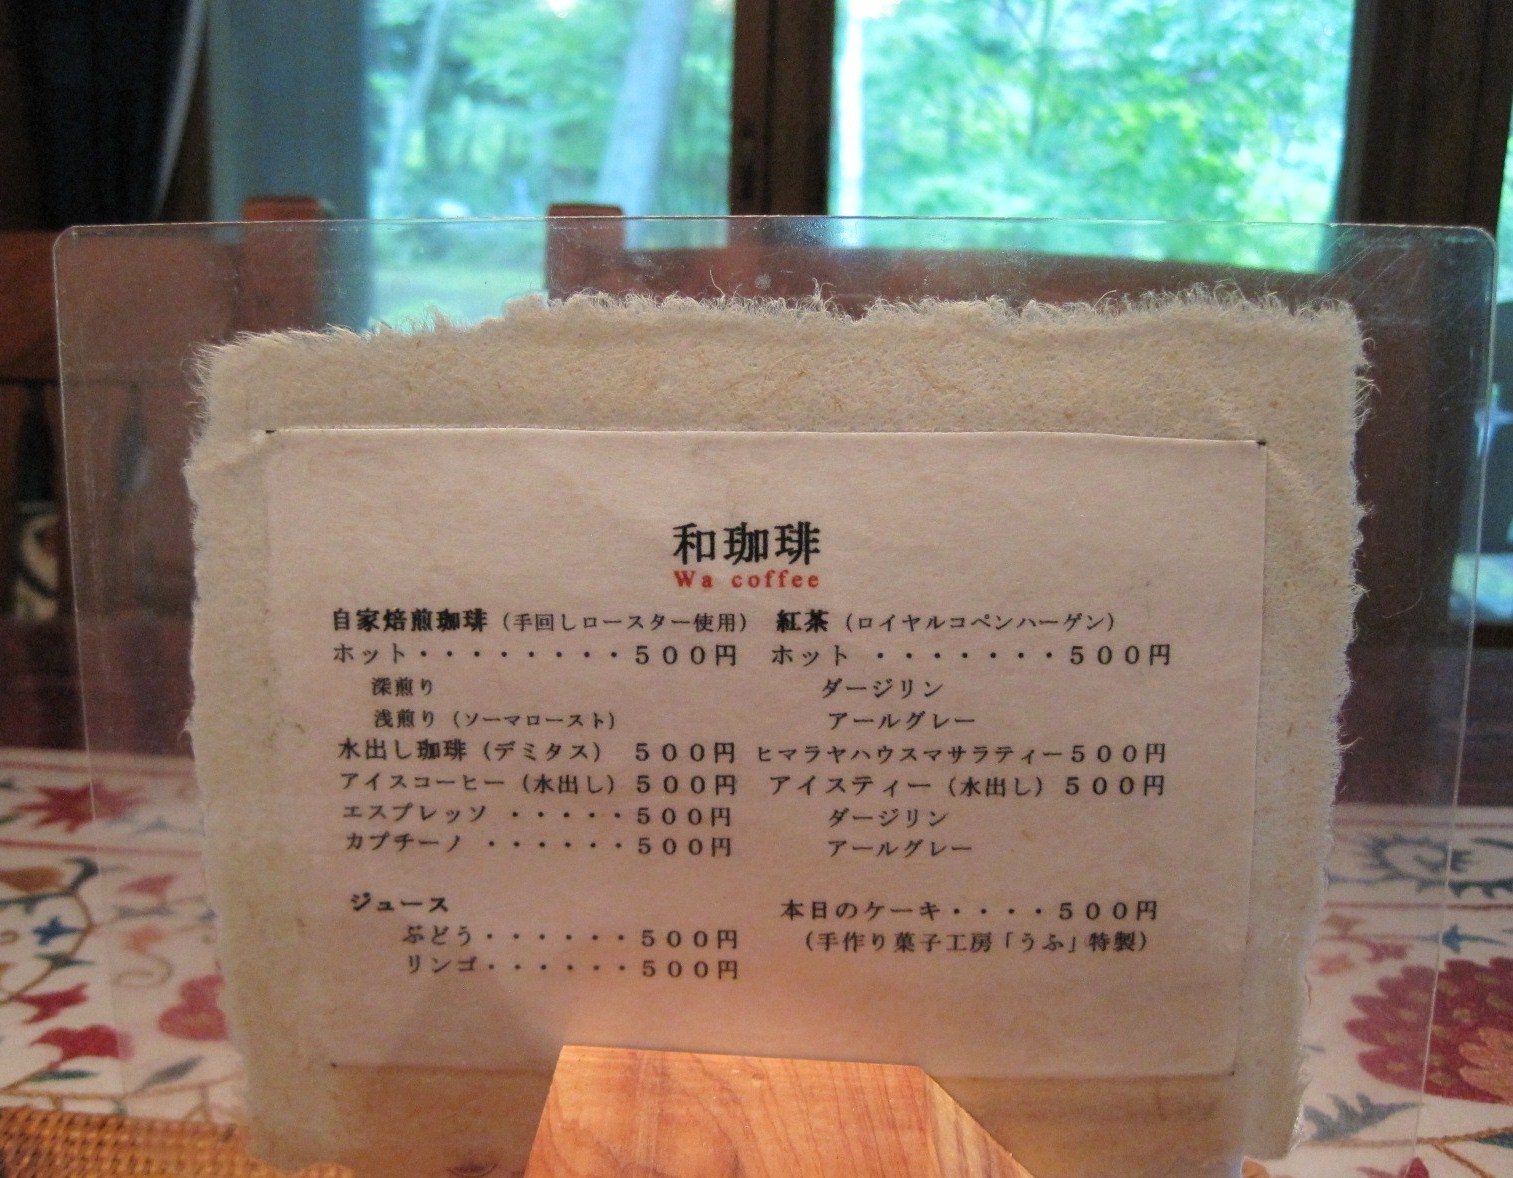 和珈琲
Wa coffee
自家焙煎珈琲（手回しロースター使用）
ホット・・・・・・・・・５００円
深煎り
浅煎り（ソーマロースト）
水出し珈琲（デミタス）　５００円
アイスコーヒー（水出し）５００円
エスプレッソ ・・・・・５００円
カプチーノ ・・・・・・５００円
ジュース
ぶどう・・・・・・５００円
リンゴ・・・・・・５００円
紅茶（ロイヤルコペンハーゲン）
ホット ・・・・・・・５００円
ダージリン
アールグレー
ヒマラヤハウスマサラティー５００円
アイスティー（水出し）５００円
ダージリン
アールグレー
本日のケーキ・・・・５００円
（手作り菓子工房「うふ」特製）